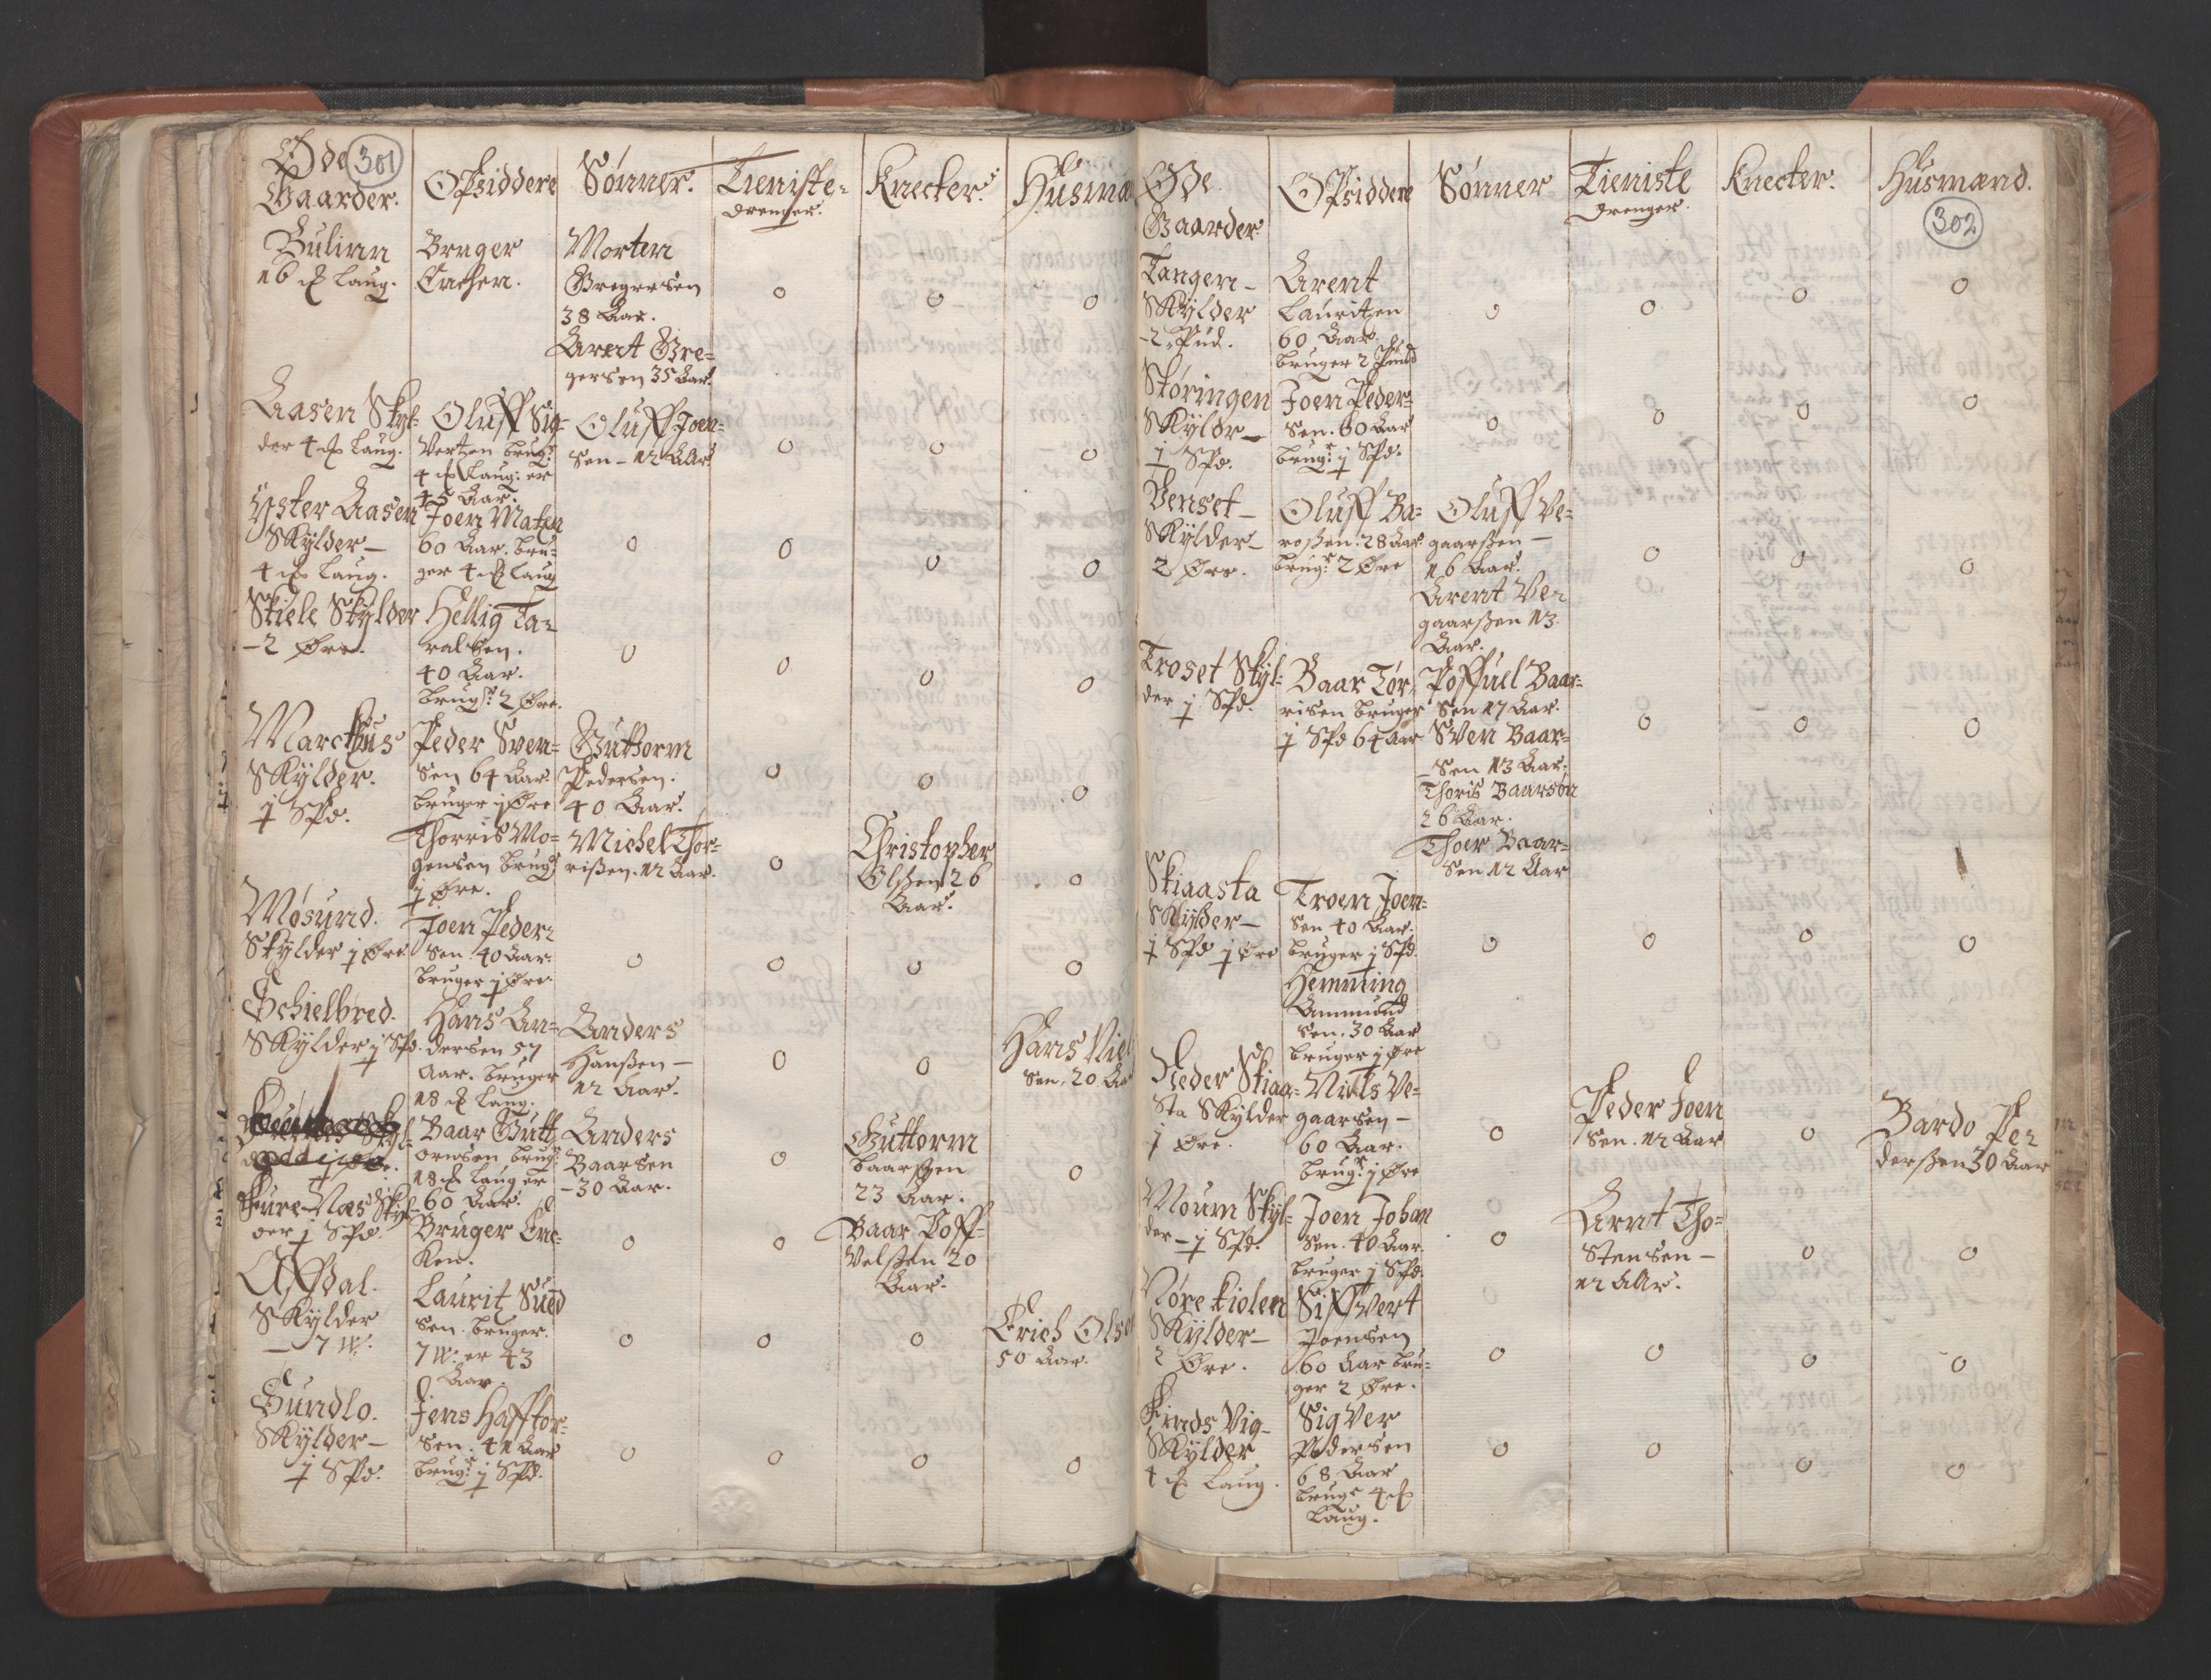 301
Øde
Gaarder.
Opsiddere
Sønner.
Tieniste-
drenger.
Knecter.
Husmæ
Bulinn
16 laug.
Bruger
Morten
Gregersen
38 Aar.
Arent Gre=
gersen 35 Aar.
0 0 0
Aasen Skyl=
der 4 laug.
Oluff Sig=
vertzen brug:
4 laug: er
45 Aar.
Oluff Joen=
sen - 12 Aar.
0 0 0
Yster Aasen
Skylder -
4 laug.
Joen Matzen
60 Aar. bru=
ger 4 laug
0 0 0 0
Skiele Skylder
- 2 Øre.
Hellig Ta=
ralsen.
40 Aar.
brug: 2 Øre.
0 0 0 0
Marchus
Skylder.
j Spd.
Peder Sven=
sen 64 Aar.
bruger j Øre
Guttorm
Pedersen.
40 Aar.
0 0 0
Thorris Mo=
gensen brug:
j Øre.
Michel Thor=
rißen. 12 Aar.
0
Christopher
Olßen 26
Aar.
0
Møsund.
Skylder j Øre.
Joen Peder=
sen. 40 Aar.
bruger j Øre.
0 0 0 0
Schielbred.
Skylder j Spd.
Hans An=
dersen 57
Aar. bruger
18 laug.
Anders
Hanßen -
12 Aar.
0 0
Hans Niel
sen. 20 Aar
Baar Gutt
ormsen brug:
18 laug er
60 Aar.
Anders
Baarsen
- 30 Aar.
0
Guttorm
baarßen
23 Aar.
0
Fure Næs Skyl=
der j Spd.
Bruger Enc=
ken.
0 0
Baar Poff=
velßen 20
Aar.
Affdal.
Skylder
- 7 W.
Laurit Suend
sen. bruger.
7 W: er 43
Aar.
0 0 0
Erich Olsen
50 Aar.
Sundlo.
Skylder -
j Spd.
Jens Hafftor=
sen. 41 Aar
brug: j Spd.
0 0 0 0
302
Øde
Gaarder
Opsiddere
Sønner
Tieniste
drenger.
Knecter.
Husmænd.
Tangen -
Skylder
- 2 Pud.
Arent
Lauritzen
60 Aar.
bruger 2 Pund
0 0 0 0
Støringen
Skyldr -
j Spd.
Joen Peder=
sen. 60 Aar
brug: j Spd.
0 0 0 0
Venset -
Skylder -
2 Øre.
Oluff Ba=
roßen. 28 Aar.
brug: 2 Øre
Oluff Ve=
gaarßen -
16 Aar.
Arent Ve=
gaarßen 13
Aar.
0 0 0
Troset Skyl=
der j Spd.
Baar Tør
risen bruger
j Spd 64 Aar
Poffuel Baar=
sen 17 Aar.
Sven Baar=
sen 13 Aar.
Thoris Baarsøn
26 Aar.
Thoer Baar=
sen 12 Aar
0 0 0
Skiaasta
Skylder -
j Spd j Øre
Troen Joen=
sen 40 Aar.
bruger j Spd.
Hemming
Ammund
sen. 30 Aar
bruger j Øre
0 0 0 0
Neder Skiaa=
sta Skylder
j Øre.
Niels Ve=
gaarsen -
60 Aar.
brug: j Øre
0
Peder Joen
sen. 12 Aar
0
Bardo Pe=
derßen 30 Aar
Moum Skyl=
der - j Spd.
Joen Johan
sen. 40 Aar.
bruger j Spd.
0
Arnt Tho=
stensen -
12 Aar.
0 0
Nøre kiolen
Skylder -
2 Øre.
Siffvert
Joensen
60 Aar bru=
ger 2 Øre.
0 0 0 0
Finds Vig -
Skylder
4 laug.
Sigver
Pedersen
68 Aar
bruge 4
laug.
0 0 0 0